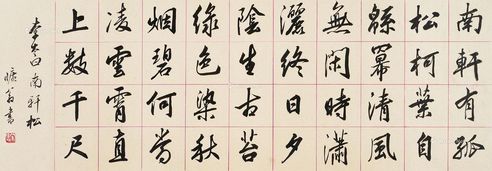 南軒有孤
松柯葉自
緜冪清風
無閑時瀟
灑終日夕
陰生古苔
綠色染秋
烟碧何當
凌雲霄直
上數千尺
李太白南軒松
翁書